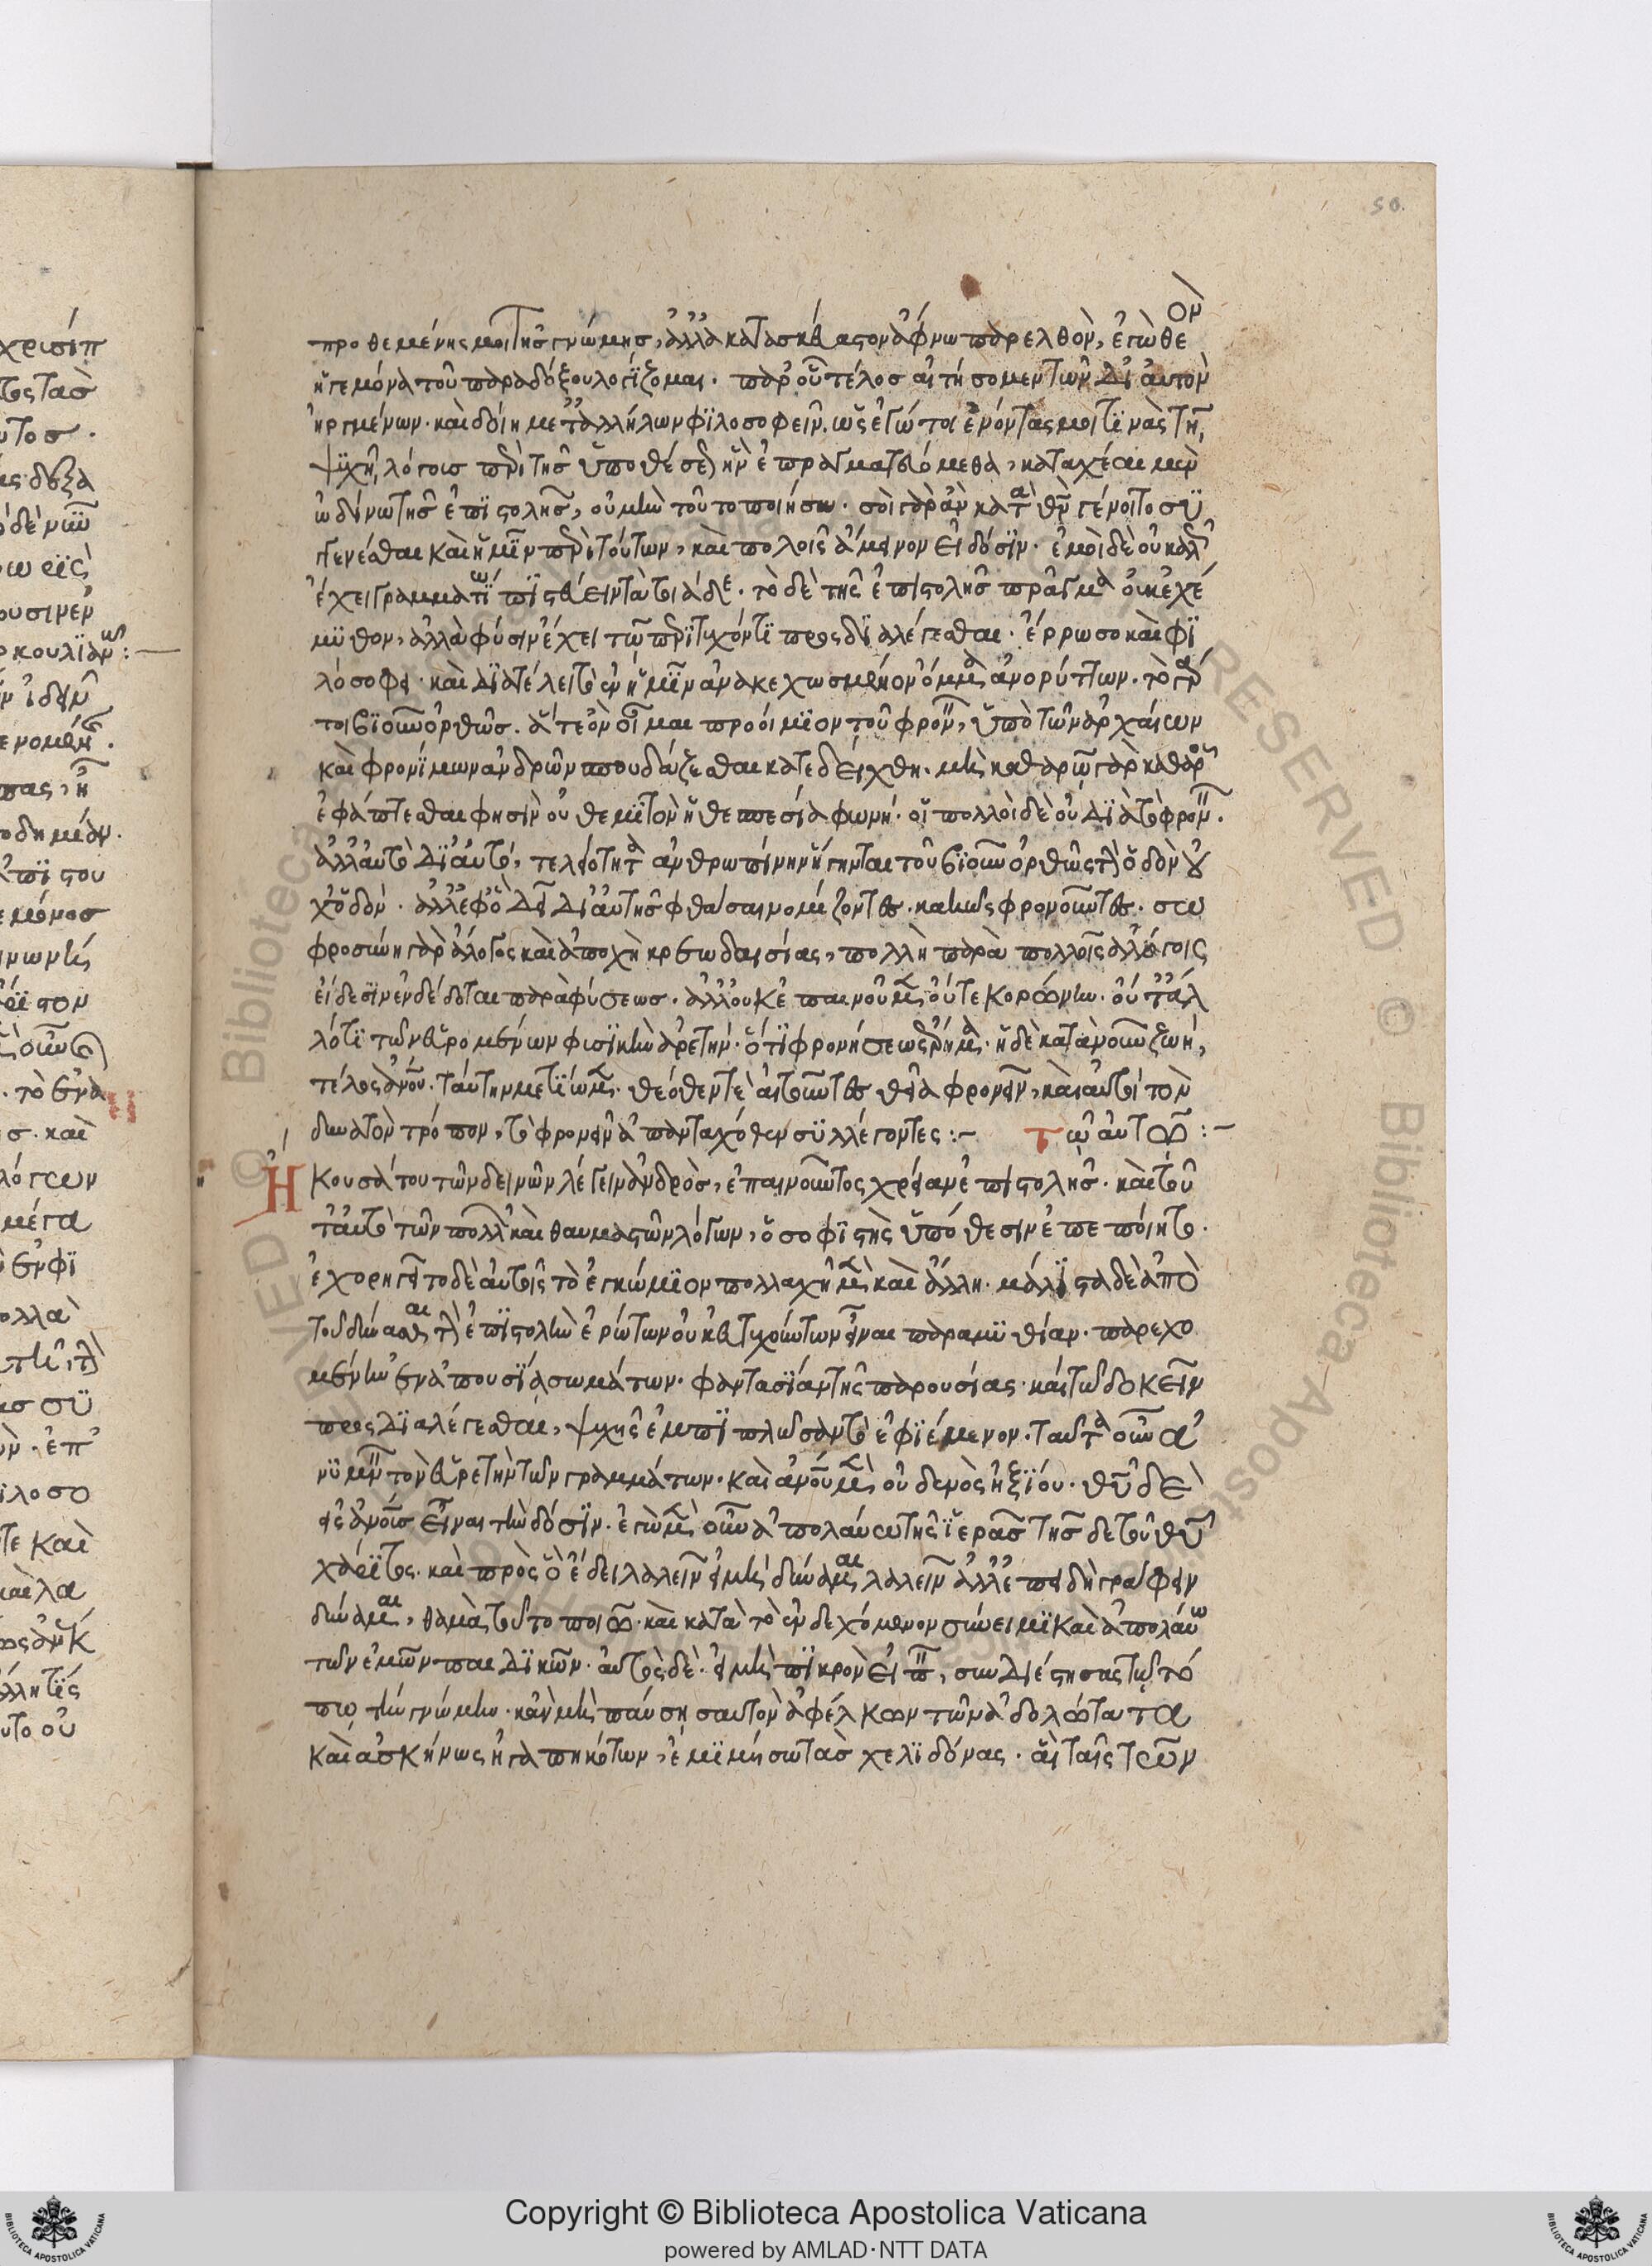 50.
προθεμένης μοι τῆς γνώμης, ἀλλὰ κατασκευαστὸν ἄφνω παρελθὸν, ἐγὼ θεὸν
ἡγεμόνα τοῦ παραδόξου λογίζομαι. παρ' οὗ τέλος αἰτήσομεν τῶν δι' αὐτὸν
ἠργμένων. καὶ δοίη μετ' ἀλλήλων φιλοσοφεῖν. ὡς ἔγωγε ἐνόντας μοί τινας τῇ
ψυχῇ λόγους περὶ τῆς ὑποθέσεως ἣν ἐπραγματευόμεθα, καταχέαι μὲν
ὠδίνω τῆς ἐπιστολῆς, οὐ μὴν τοῦτο ποιήσω. σοὶ γὰρ ἂν κατὰ θεὸν γένοιτο συγ
γενέσθαι καὶ ἡμῖν περὶ τούτων, καὶ πολλοῖς ἄμεινον εἰδόσιν. ἐμοὶ δὲ οὐ καλῶς
ἔχει γραμματίῳ πιστεύειν τὰ τοιάδε. τὸ δὲ τῆς ἐπιστολῆς πρᾶγμα οὐκ ἐχέ
μυθον, ἀλλὰ φύσιν ἔχει τῷ περιτυχόντι προσδιαλέγεσθαι. ἔρρωσο καὶ φι
λοσόφει. καὶ διατέλει τὸ ἐν ἡμῖν ἀνακεχωσμένον ὄμμα ἀνορύττων. τὸ γάρ
τοι βιοῦν ὀρθῶς. ἅτε ὂν οἶμαι προοίμιον τοῦ φρονεῖν, ὑπὸ τῶν ἀρχαίων
καὶ φρονίμων ἀνδρῶν σπουδάζεσθαι κατεδείχθη. μὴ καθαρῷ γὰρ καθαροῦ
ἐφάπτεσθαι φησὶν οὐ θεμιτὸν ἡ θεσπεσία φωνή. οἱ πολλοὶ δὲ οὐ διὰ τὸ φρονεῖν.
ἀλλ' αὐτὸ δι' αὑτό, τελειότητα ἀνθρωπίνην ἥγηνται τοῦ βιοῦν ὀρθῶς τὴν ὁδὸν οὐ
χ ὁδὸν. ἀλλ' ἐφ' ὃ δεῖ δι' αὐτῆς φθάσαι νομίζοντες. κακῶς φρονοῦντες. σω
φροσύνη γὰρ ἄλογος καὶ ἀποχὴ κρεωδαισίας, πολλὴ παρὰ πολλοῖς ἀλόγοις
εἴδεσιν ἐνδέδοται παρὰ φύσεως. ἀλλ' οὐκ ἐπαινοῦμεν οὔτε κορώνην. οὔτ' ἄλ
λό τι τῶν εὑρομένων φυσικὴν ἀρετήν. ὅτι φρονήσεως ἔρημα. ἡ δὲ κατὰ νοῦν ζωή,
τέλος ἀνθρώπου. ταύτην μετίωμεν. θεόθεν τε αἰτοῦντες θεῖα φρονεῖν, καὶ αὐτοὶ τὸν
δυνατὸν τρόπον, τὸ φρονεῖν ἁπανταχόθεν συλλέγοντες :- Τῷ αὐτῷ :-
Ἤκουσά του τῶν δεινῶν λέγειν ἀνδρὸς, ἐπαινοῦντος χρείαν ἐπιστολῆς. καὶ τοῦ
τ' αὐτὸ τῶν πολλῶν καὶ θαυμαστῶν λόγων, ὁ σοφιστὴς ὑπόθεσιν ἐπεποίητο.
ἐχορηγεῖτο δὲ αὐτοῖς τὸ ἐγκώμιον πολλαχῇ μὲν καὶ ἄλλῃ. μάλιστα δὲ ἀπὸ
τοῦ δύνασθαι τὴν ἐπιστολὴν ἐρώτων οὐκ εὐτυχούντων εἶναι παραμυθίαν. παρεχο
μένην ἐν ἀπουσίᾳ σωμάτων. φαντασίαν τῆς παρουσίας. καὶ τῷ δοκεῖν
προσδιαλέγεσθαι, ψυχῆς ἐμπιπλῶσαν τὸ ἐφιέμενον. ταῦτα οὖν ἀ
νύμνει τὸν εὑρετὴν τῶν γραμμάτων. καὶ ἀνθρώπου μὲν οὐδενὸς ἠξίου. θεοῦ δὲ
εἰς ἀνθρώπους εἶναι τὴν δόσιν. ἐγὼ μὲν οὖν ἀπολαύω τῆς ἱερᾶς τῆσδε τοῦ θεοῦ
χάριτος. καὶ πρὸς ὃ ἔδει λαλεῖν εἰ μὴ δύναμαι λαλεῖν ἀλλ' ἐπειδὴ γράφειν
δύναμαι, θαμὰ τοῦτο ποιῶ. καὶ κατὰ τὸ ἐνδεχόμενον σύνειμι καὶ ἀπολαύω
τῶν ἐμῶν παιδικῶν. αὐτὸς δὲ. εἰ μὴ πικρὸν εἰπεῖν, συνδιέστησας τῷ τό
πῳ τὴν γνώμην. κἂν μὴ παύσῃ σαυτὸν ἀφέλκων τῶν ἀδολώτατα
καὶ ἀσκήνως ἠγαπηκότων, ἐμιμήσω τὰς χελιδόνας. αἳ ταῖς τῶν
Copyright © Biblioteca Apostolica Vaticana
powered by AMLAD·NTT DATA